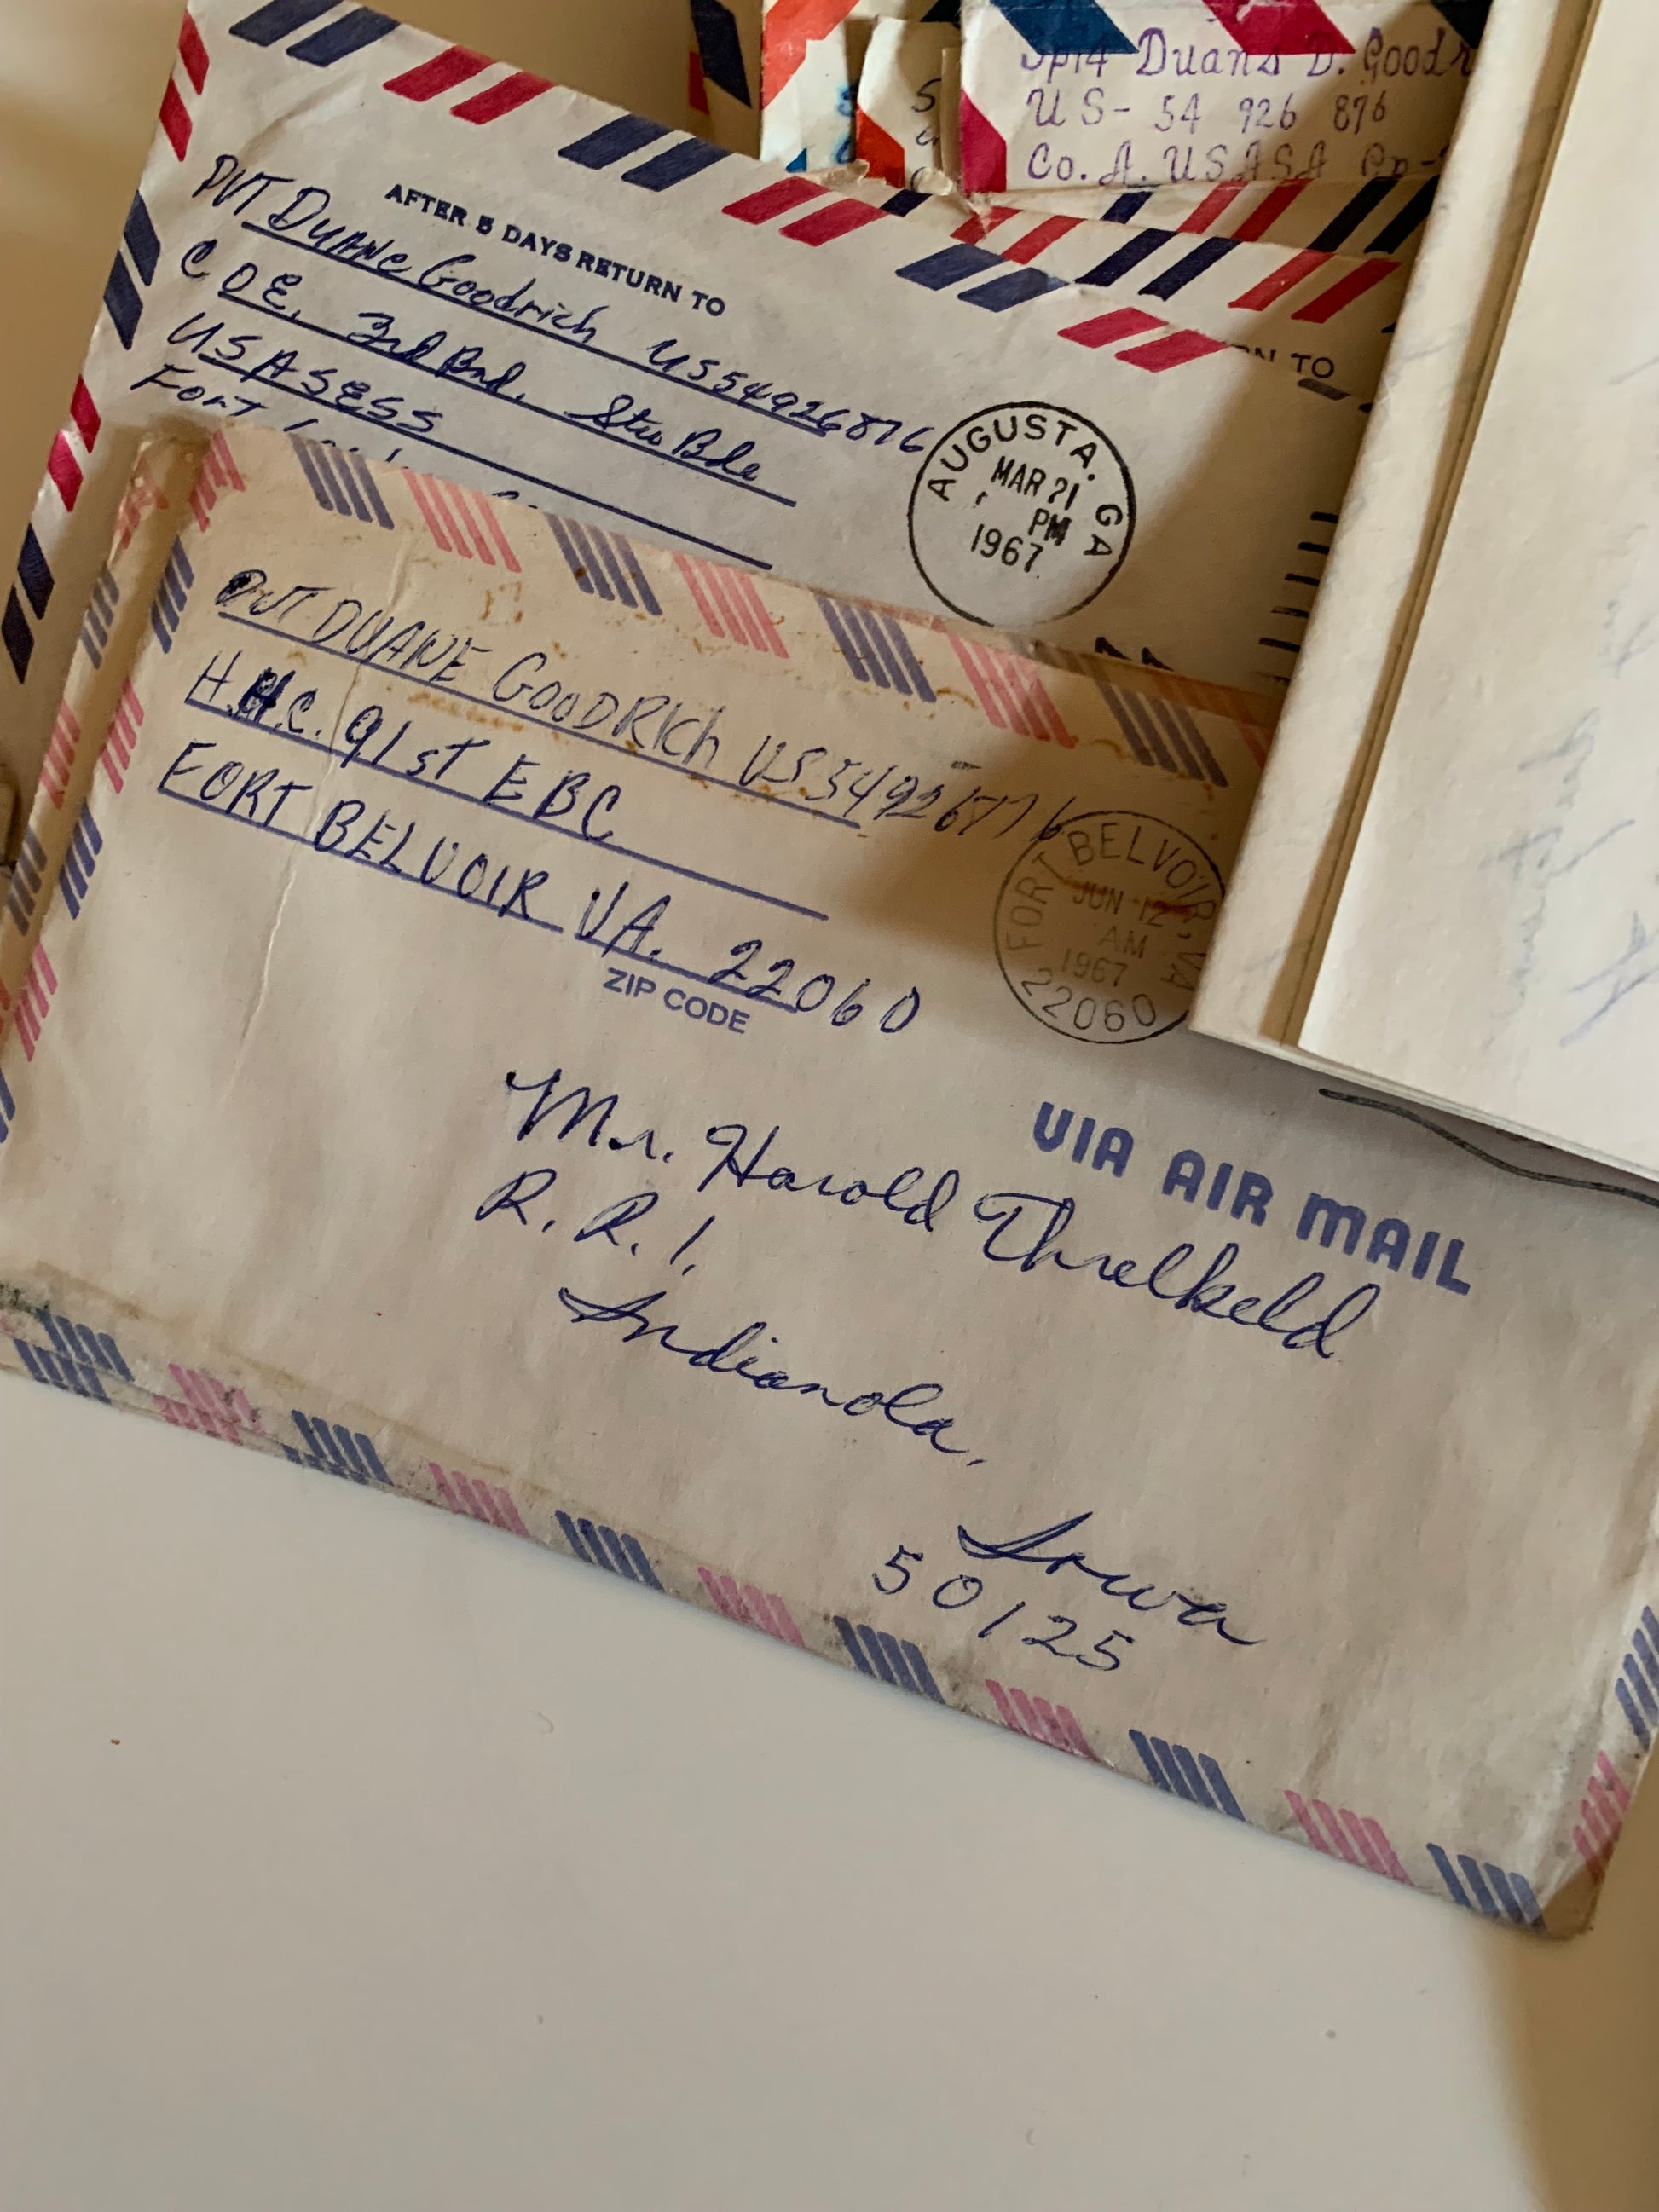 Sp14 Duane D. Goodr
US- 54 926 876
Co. A. USASA
TO
AFTER 5 DAYS RETURN TO
PVT Duane Goodrich US54926876
CO E. 3rd Bnd. Stu Bde
USASESS
Fort
AUGUSTA. GA
MAR 21
PM
1967
PVT DUANE GOODRICH US54926876
H.H.C. 91st EBC
FORT BELVOIR VA. 22060
ZIP CODE
FORT BELVOIR, VA
JUN 12
AM
1967
22060
VIA AIR MAIL
Mr. Harold Threlkeld
R. R. 1.
Indianola,
Iowa
50125